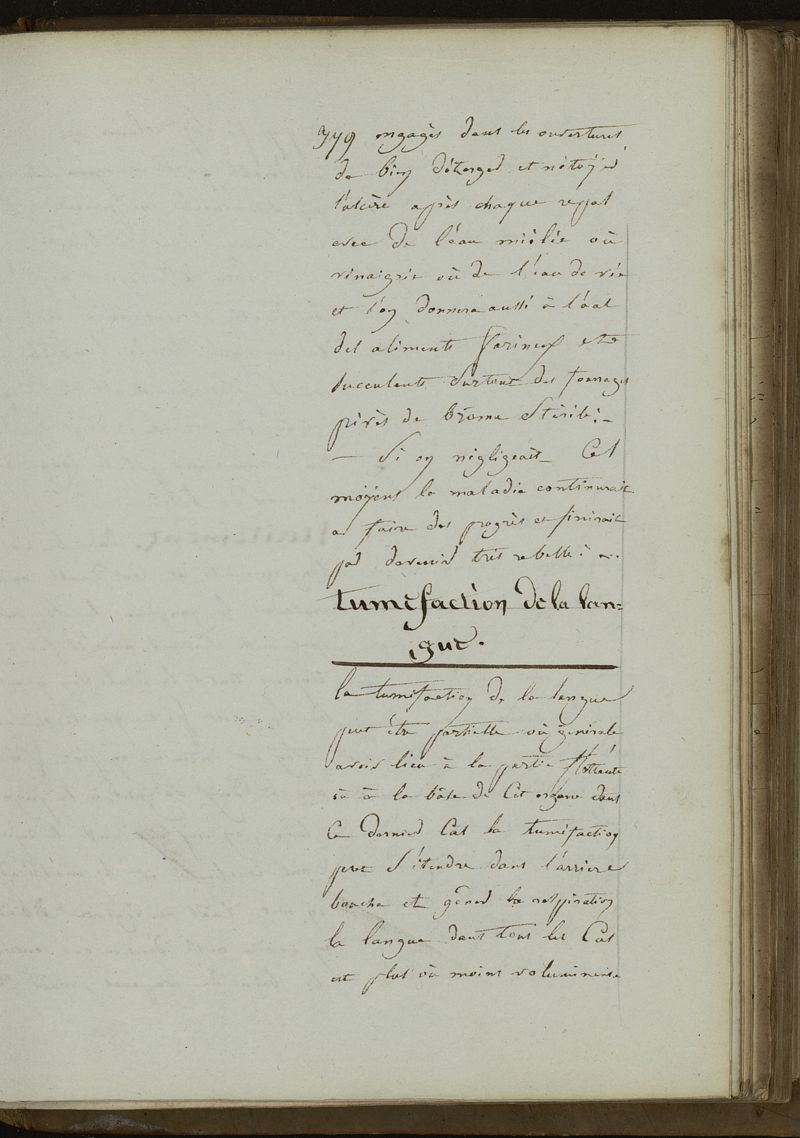 379 engagés dans les ouvertures
de bien déterger et nétoyer
l'ulcère après chaque repas
avec de l'éau miélée où
vinaigrée où de l'éau de vie
et l'on donnera aussi à l'âne
des aliments farineux et
succulents surtout des fourages
privés de brome stérile :-
— Si on négligeait Ces
moÿens la maladie continurait
a faire des progrès et finirait
par devenir très rebelle : ~.
tuméfaction de la lan=
gue.
la tuméfaction de la langue
peut être partielle où générale
avoir lieu à la partie flottante
où à la bâse de Cet organe dans
Ce dernier Cas la tuméfaction
peut s'étendre dans l'arriere
bouche et gêner la respiration
la langue dans tous les Cas
est plus où moins volumineuse